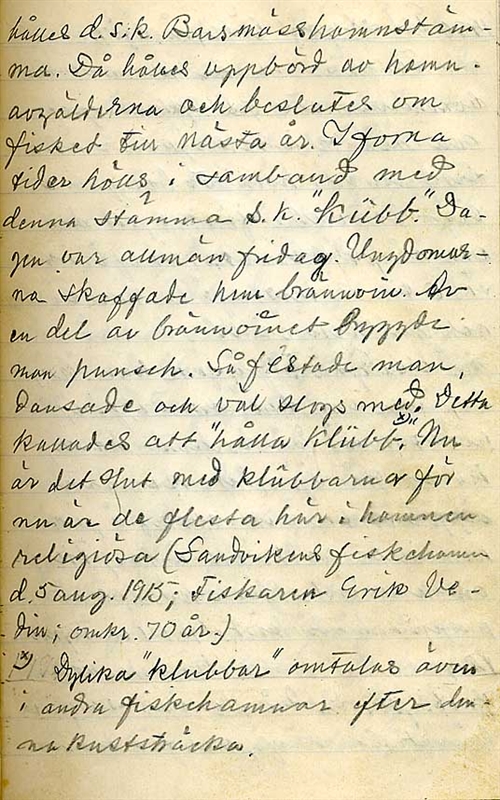 hålles d.s.k. Barsmässhamnstäm-
ma. Då hålles uppbörd av hamn-
avgälderna och beslutes om
fisket till nästa år. I forna
tider hölls i samband med
denna stämma s.k. "klübb." Da-
gen var allmän fridag. Ungdomar-
na skaffade hem brännvin. Av
en del av brännvinet bryggde
man punsch. Så festade man,
dansade och väl slogs med. Detta
kallades att "hålla klübb. x)" Nu
är det slut med klübbarna för
nu är de flesta här i hamnen
religiösa (Sandvikens fiskehamn
d. 5 aug. 1915; Fiskaren Erik Ve-
din; omkr. 70 år.)
x) Dylika "klubbar" omtalas även
i andra fiskehamnar efter den-
na kuststräcka.